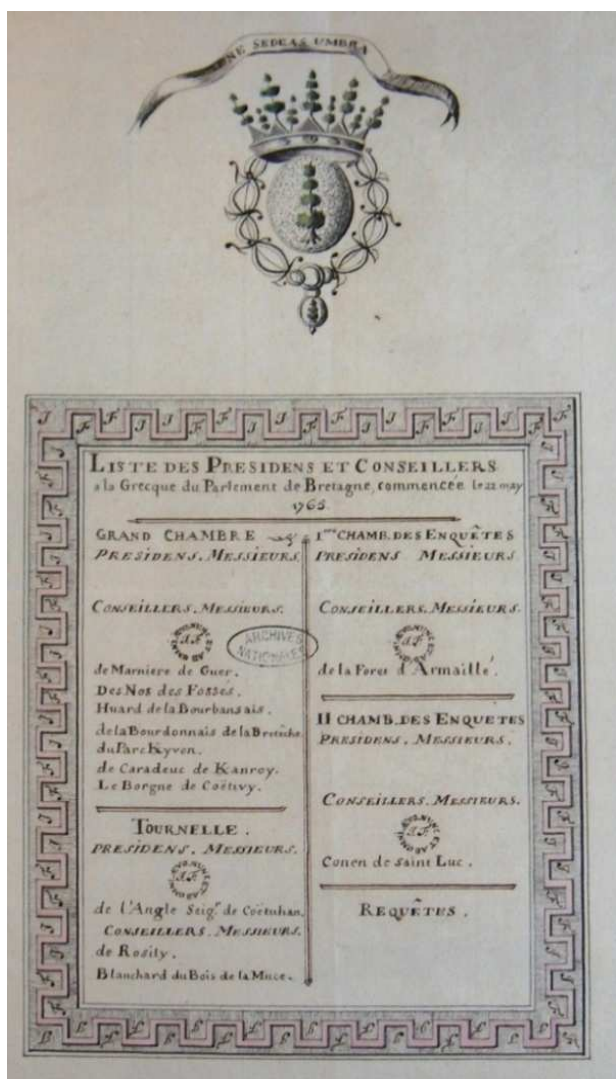 SEDEAS UMBRA
LISTE DES PRESIDENS ET CONSEILLERS
a la Grecque du Parlement de Bretagne, commencée le 22 may
1765
GRAND CHAMBRE
PRESIDENS. MESSIEURS.
CONSEILLERS. MESSIEURS.
J.F.
de Marniere de Guer.
Des Nos des Fosses.
Huard de la Bourbansais.
de la Bourdonnais de la Bretêche
du Parc Kyvon.
de Caradeuc de Kanroy.
Le Borgne de Coëtivy.
TOURNELLE.
PRESIDENS. MESSIEURS.
J.F.
de l'Angle Seigr. de Coëtuhan.
CONSEILLERS. MESSIEURS.
de Rosily.
Blanchard du Bois de la Muce.
ARCHIVES
NATIONALES
Ire CHAMB. DES ENQUÊTES
PRESIDENS MESSIEURS
CONSEILLERS. MESSIEURS.
J.F.
de la Forest d'Armaillé.
II CHAMB. DES ENQUETES
PRESIDENS. MESSIEURS.
CONSEILLERS. MESSIEURS.
J.F.
Conen de saint Luc.
REQUÊTES.